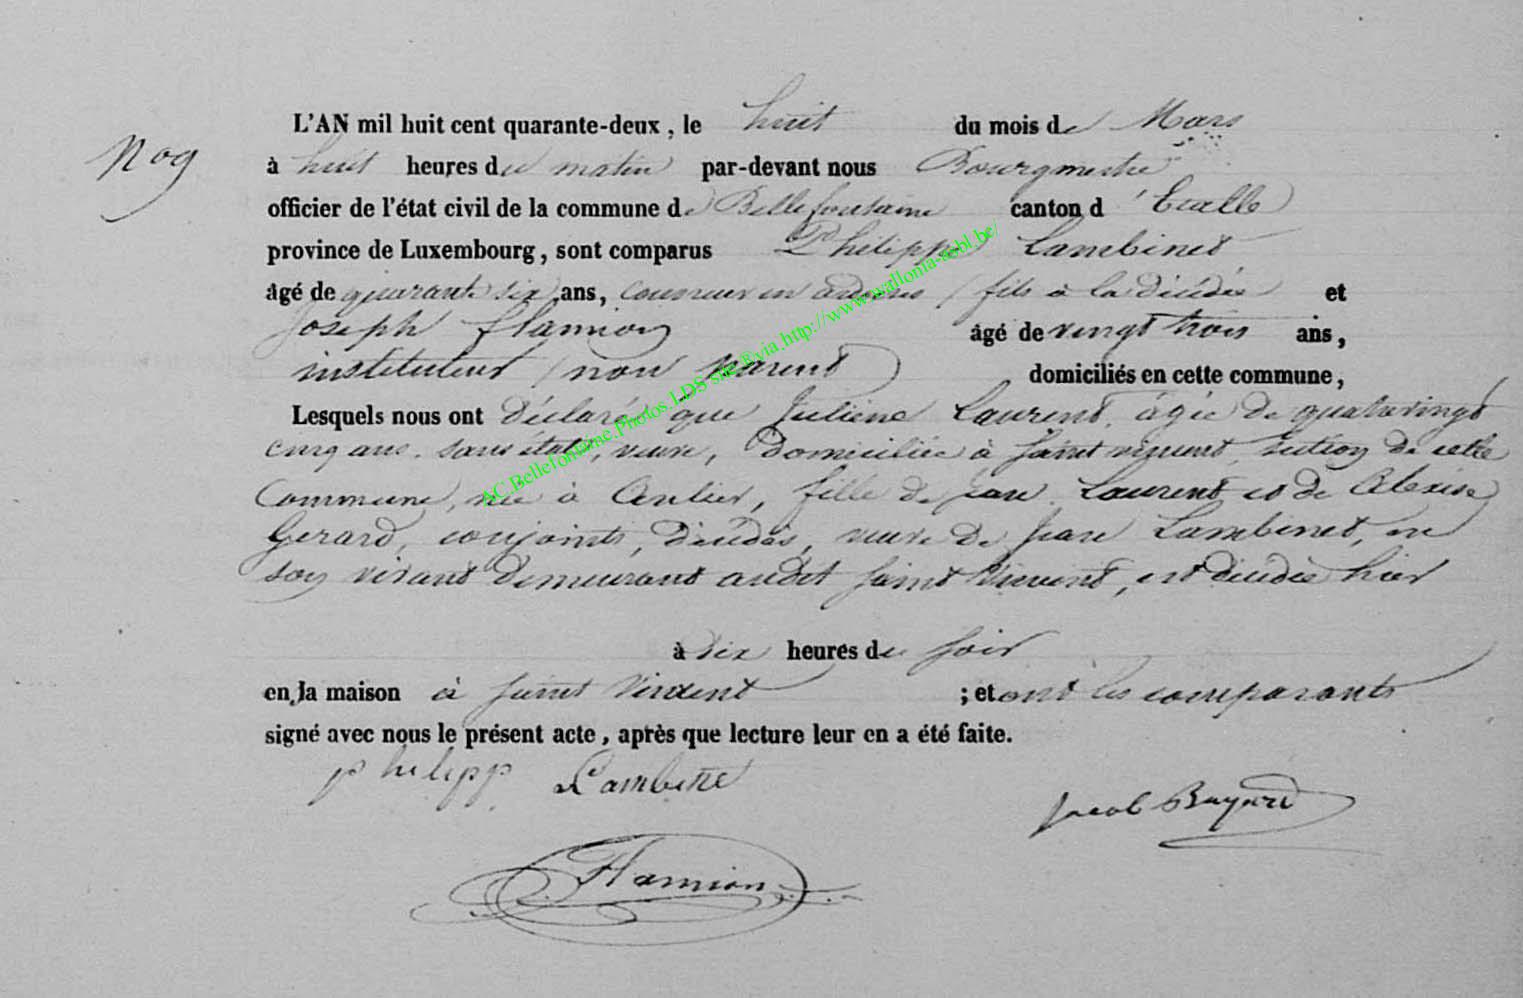 N o 9
L'AN mil huit cent quarante-deux, le huit du mois de Mars
à huit heures du matin par-devant nous Bourgmestre
officier de l'état civil de la commune de Bellefontaine canton d'Etalle
province de Luxembourg, sont comparus Philippe Lambinet
âgé de quarante six ans, couvreur en ardoises, fils à la décédée et
Joseph Flamion âgé de vingt trois ans,
instituteur, non parent domiciliés en cette commune,
Lesquels nous ont déclaré que Juliène Laurent, âgée de quatrevingt
cinq ans, sans état, veuve, domiciliée à Saint vincent section de cette
Commune, née à Anlier, fille de jean Laurent et de Alexise
Gerard, conjoints, décédés, veuve de Jean Lambinet, en
son vivant demeurant audit Saint Vincent, est décédée hier
à dix heures du soir
en la maison à Saint Vincent ; et ont les comparants
signé avec nous le présent acte, après que lecture leur en a été faite.
philipp Lambine
Jacob Bayard
Flamion
AC.Bellefontaine.Photos LDS site &via http://www.wallonia-asbl.be/